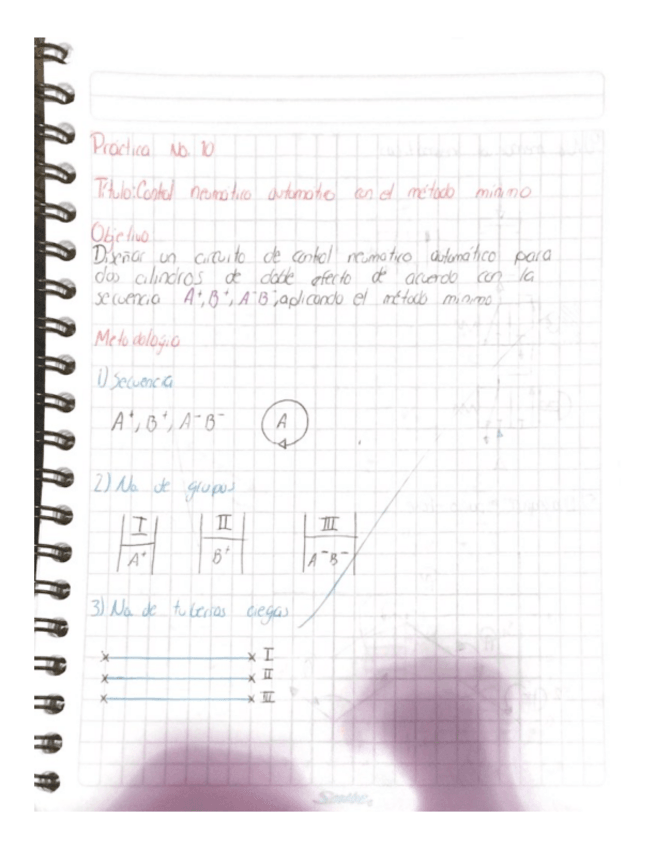 Practica No. 10
Titulo: Contol neumatico automatio con el método minimo
Objetivo
Diseñar un circuito de contol neumatico automático para
dos cilindros de doble efecto de acuerdo con la
secuencia A⁺, B⁺, A⁻B⁻, aplicando el método minimo.
Metodologia
1) Secuencia
A⁺, B⁺, A⁻B⁻ A
2) No. de grupos
I II III
A⁺ B⁺ A⁻B⁻
3) No. de tuberias ciegas
x x I
x x II
x x III
Scribe